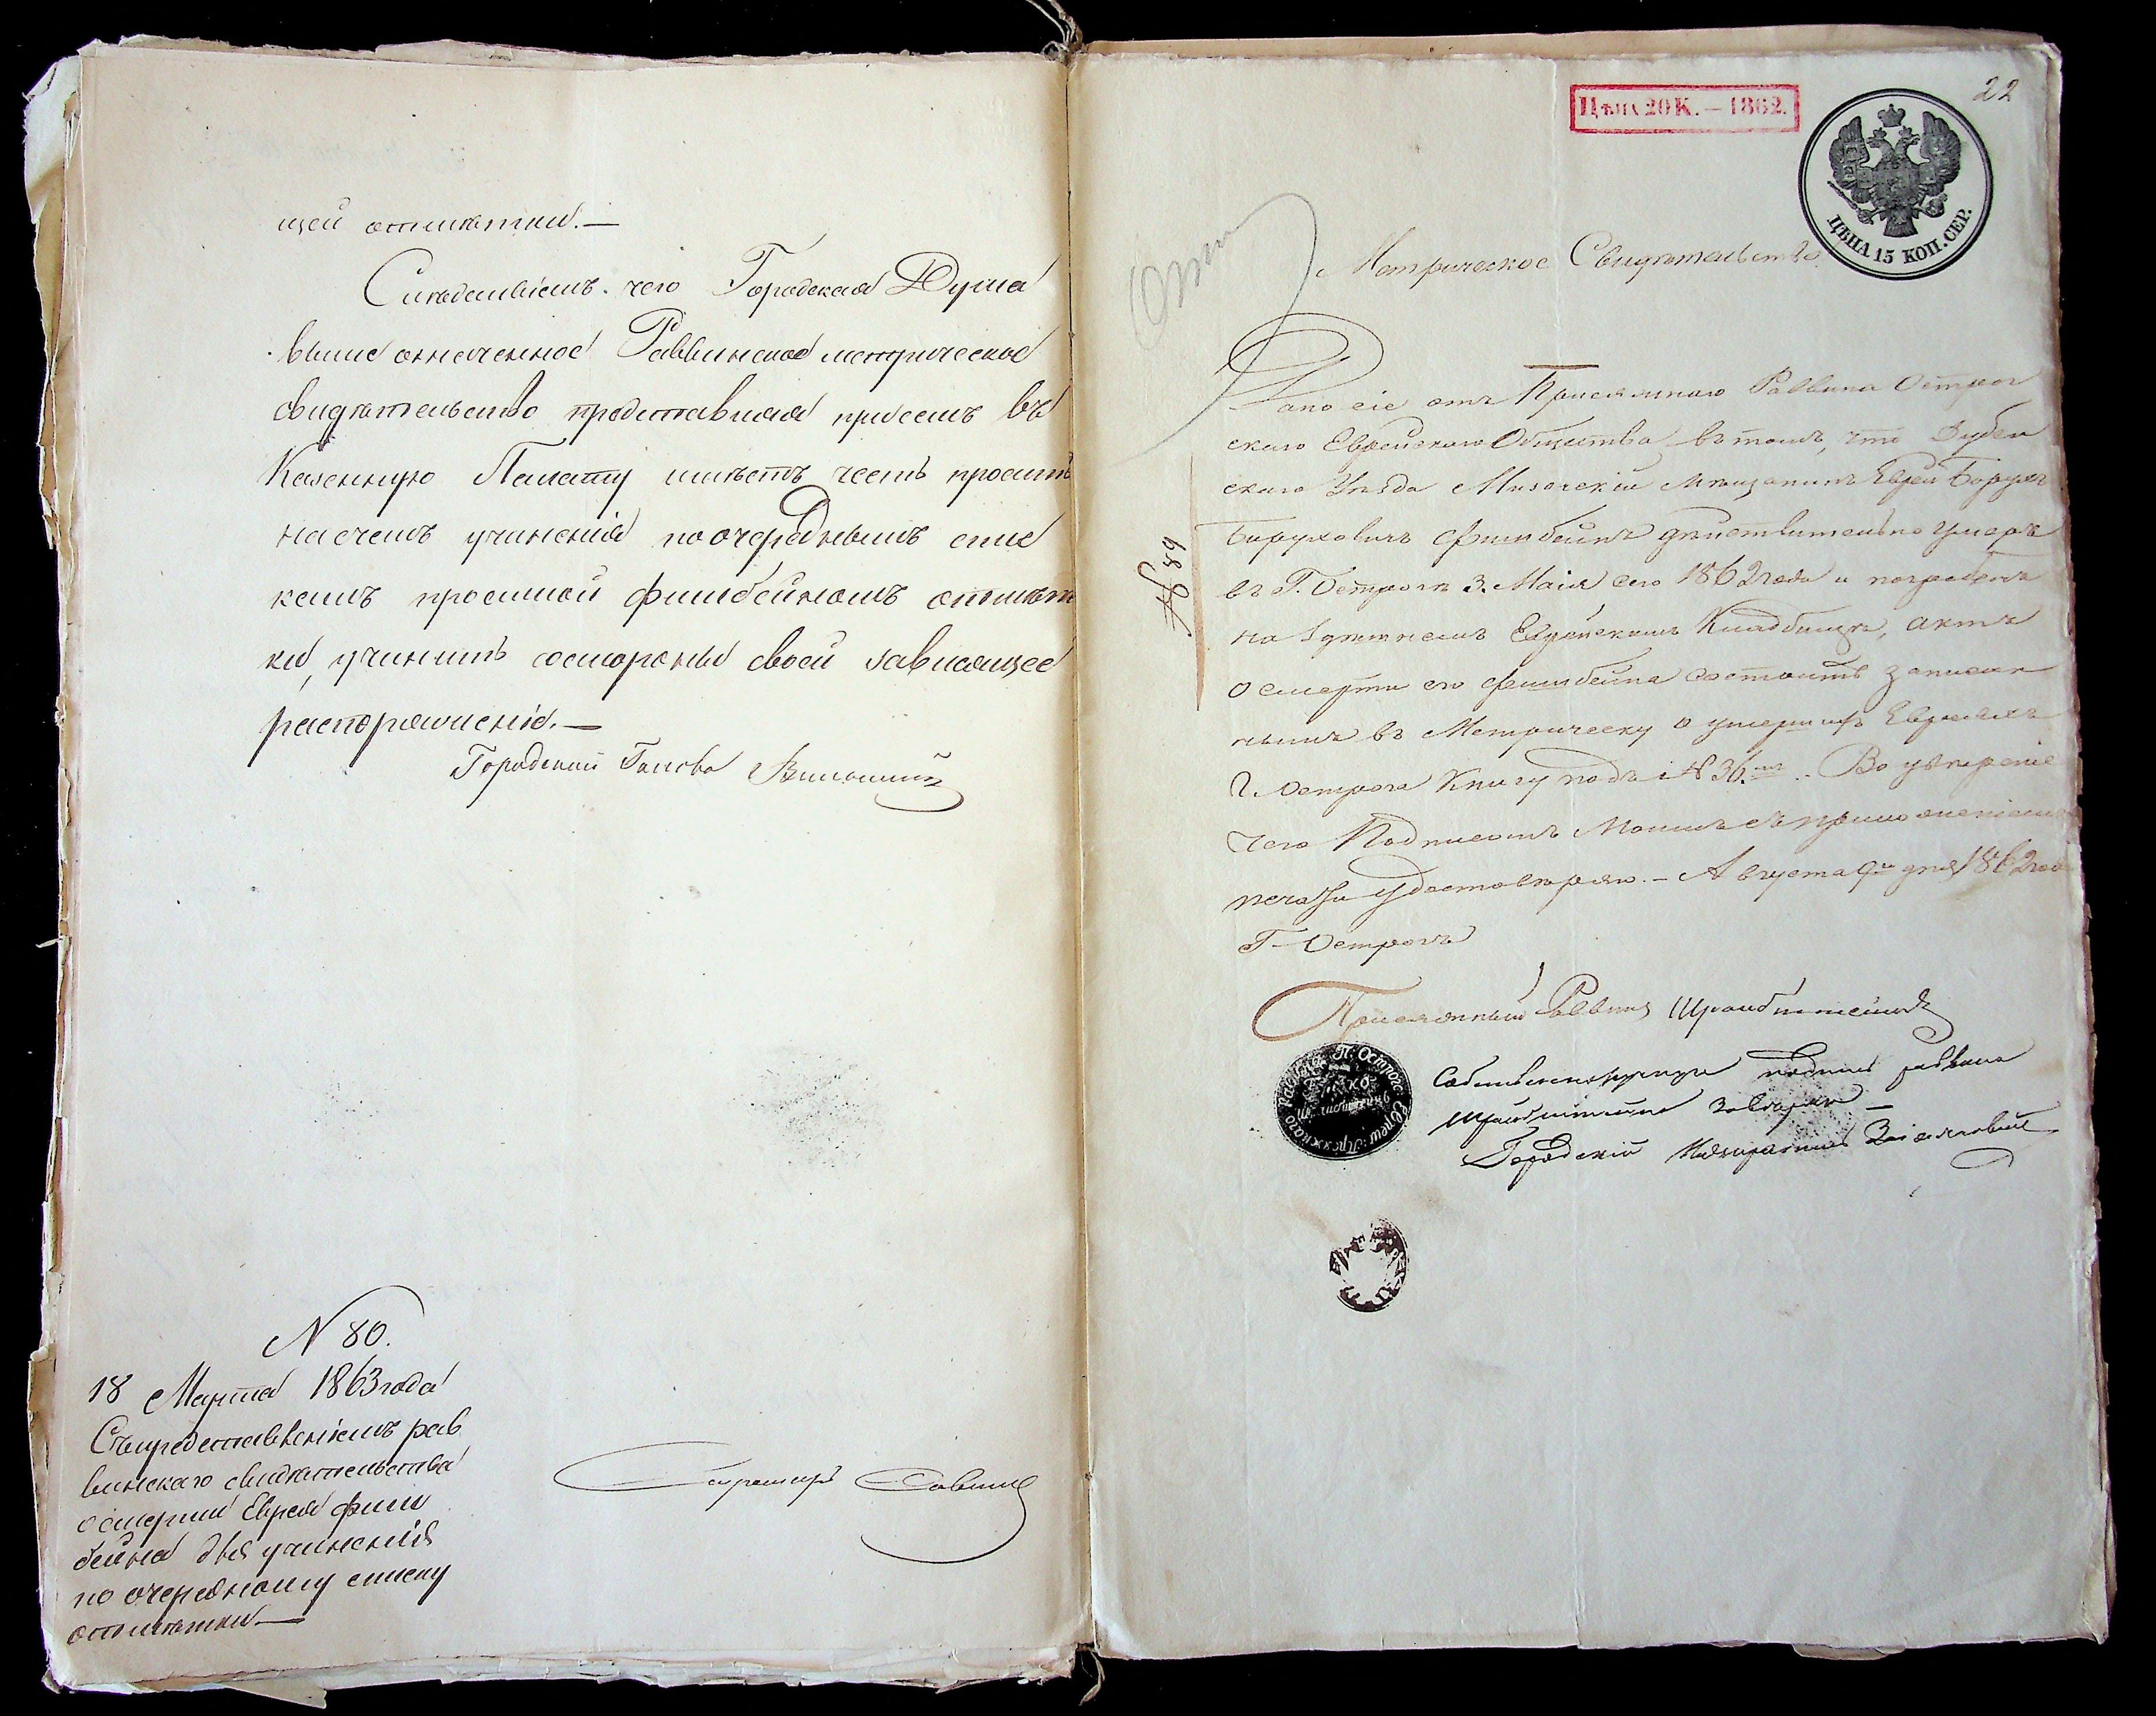 щей отмѣтки.—
Слѣдствіемъ чего Городская Дума
выше означенное Раввинское метрическое
свидѣтельство представляя присемъ въ
Казенную Палату имѣетъ честь просить
насчетъ учиненія поочереднымъ спис
камъ просимой Фишбейномъ отмѣт
ки, учинить состороны своей зависящее
распоряженіе.—
Городской Голова
N 80.
18 Марта 1863 года
Съ представленіемъ рав
винскаго свидѣтельства
о смерти Еврея Фиш
бейна для учиненія
по очередному списку
отмѣтки—
Секретарь Савич
22
Цѣна 20 К. — 1862.
ЦѢНА 15 КОП. СЕР.
Метрическое Свидѣтельство
Дано сіе отъ Присяжнаго Раввина Острог
скаго Еврейскаго Общества въ томъ, что Дубен
скаго Уѣзда Мизочскій Мѣщанинъ Еврей Борухъ
Боруховичъ Фишбейнъ дѣйствительно умеръ
въ Г. Острогѣ 3. Маія сего 1862 года и погребенъ
на здѣшнемъ Еврейскомъ Кладбищѣ, актъ
о смерти его Фишбейна состоитъ записан
нымъ въ Метрическу о умершихъ Евреяхъ
Г. Острога Книгу подъ N 36.мъ. Во увѣреніе
чего Подписомъ Моимъ съ приложеніемъ
печати удостовѣряю. — Августа 9го дня 1862 года
Г. Острогъ
№ 89
Присяжный Раввинъ
Собственноручную подпись раввина
завѣряю —
Городскій